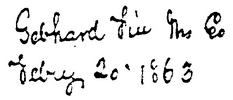 Gebhard Fire Ins Co
Feby 20 1863